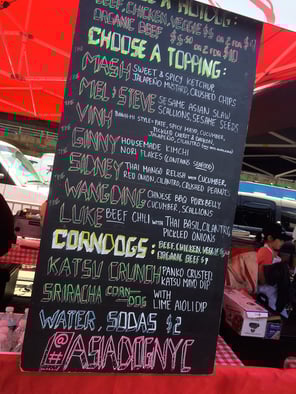 A HOTDOG:
BEEF, CHICKEN, VEGGIE $5 OR 2 FOR $9
ORGANIC BEEF $6.50 OR 2 FOR $10
CHOOSE A TOPPING:
THE MASH SWEET & SPICY KETCHUP
JALAPEÑO MUSTARD, CRUSHED CHIPS
THE MEL & STEVE SESAME ASIAN SLAW
SCALLIONS, SESAME SEEDS
THE VINH BANH-MI STYLE PATE, SPICY MAYO, CUCUMBER,
PICKLED CARROT & DAIKON
JALAPENO, CILANTRO
THE GINNY HOUSEMADE KIMCHI
NORI FLAKES (CONTAINS SEAFOOD)
THE SIDNEY THAI MANGO RELISH WITH CUCUMBER,
RED ONION, CILANTRO, CRUSHED PEANUTS
THE WANGDING CHINESE BBQ PORK BELLY
CUCUMBER, SCALLIONS
THE LUKE BEEF CHILI WITH THAI BASIL, CILANTRO,
PICKLED ONIONS
CORNDOGS: BEEF, CHICKEN, VEGGIE
ORGANIC BEEF
KATSU CRUNCH PANKO CRUSTED
KATSU MAYO DIP
SRIRACHA CORN DOG WITH
LIME AIOLI DIP
WATER, SODAS $2
@#ASIADOGNYC